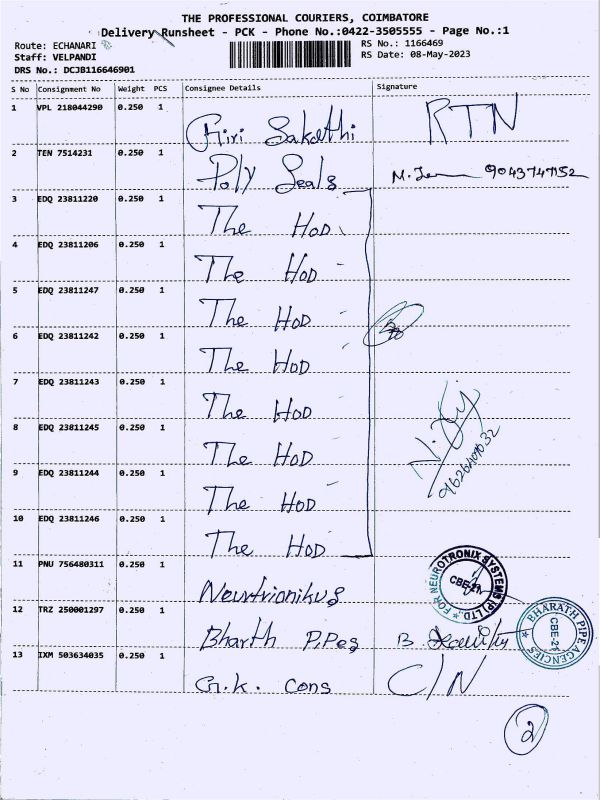 THE PROFESSIONAL COURIERS, COIMBATORE
Delivery Runsheet - PCK - Phone No.:0422-3505555 - Page No.:1
Route: ECHANARI
RS No.: 1166469
Staff: VELPANDI
RS Date: 08-May-2023
DRS No.: DCJB116646901
S No Consignment No Weight PCS Consignee Details Signature
1 VPL 218044290 0.250 1 Giri Sakathi RTN
2 TEN 7514231 0.250 1 Poly Seals M. 9043747152
3 EDQ 23811220 0.250 1 The HOD
4 EDQ 23811206 0.250 1 The HOD
5 EDQ 23811247 0.250 1 The HOD
6 EDQ 23811242 0.250 1 The HOD
7 EDQ 23811243 0.250 1 The HOD
8 EDQ 23811245 0.250 1 The HOD
9 EDQ 23811244 0.250 1 The HOD
10 EDQ 23811246 0.250 1 The HOD
11 PNU 756480311 0.250 1 Neurtrionikus
FOR NEUROTRONIX SYSTEMS (P) LTD.,
CBE-21.
12 TRZ 250001297 0.250 1 Bharth Pipes B.
BHARATH PIPE AGENCIES
CBE-21
13 IXM 503634035 0.250 1 G.k. Cons C/N
2